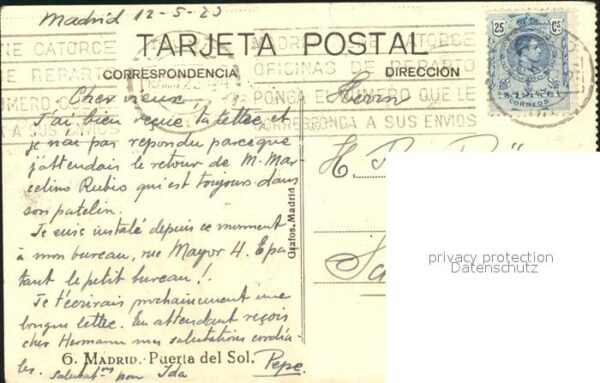 Madrid 12-5-23
TARJETA POSTAL
CORRESPONDENCIA
DIRECCION
NE CATORCE
DE REPARTO
NUMERO
A SUS ENVIOS
MADRID CATORCE
OFICINAS DE REPARTO
PONGA EL NUMERO QUE LE
CORRESPONDA A SUS ENVIOS
25 Cs.
CORREOS
Cher vieux
J'ai bien reçue ta lettre et
je n'ai pas repondu parceque
j'attendais le retour de M. Mar-
celino Rubio qui est toujours dans
son patelin.
Je suis instalé depuis ce moment
à mon bureau, rue Mayor 4. Epa-
tant le petit bureau!.
Je t'écrirais prochainement une
longue lettre. En attendant reçois
cher Hermann mes salutations cordia
les.
Pepe
pour Ida
Herrn
H.
Grafos. Madrid
6. MADRID.-Puerta del Sol.
privacy protection
Datenschutz